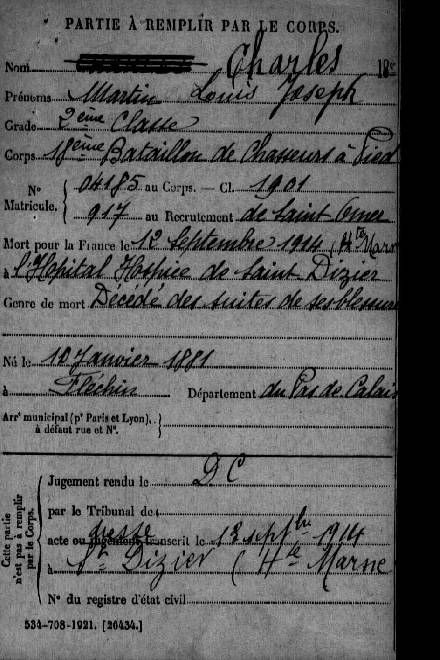 PARTIE À REMPLIR PAR LE CORPS.
Nom Charles
Prénoms Martin Louis Joseph
Grade 2ème Classe
Corps 18ème Bataillon de Chasseurs à Pied
N° Matricule. 04185 au Corps. — Cl. 1901
917 au Recrutement de Saint Omer
Mort pour la France le 12 Septembre 1914 (Hte Marn
à l'Hopital Hospice de Saint Dizier
Genre de mort Décédé des suites de ses blessure
Né le 10 Janvier 1881
à Fléchin Département du Pas de Calais
Arrt municipal (pr Paris et Lyon), à défaut rue et N°.
Cette partie n'est pas à remplir par le Corps.
Jugement rendu le D C
par le Tribunal de
acte ou jugement transcrit le 12 septbre 1914
à St Dizier (Hte Marne
N° du registre d'état civil
534-708-1921. [26434.]